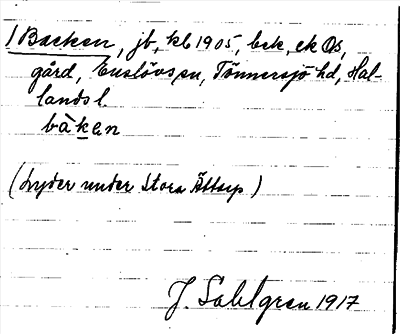 1 Backen, jb, kb 1905, bek, ek Os,
gård, Enslövs sn, Tönnersjö hd, Hal-
lands l.
bàken
(Lyder under Stora Ättarp)
J. Sahlgren 1917